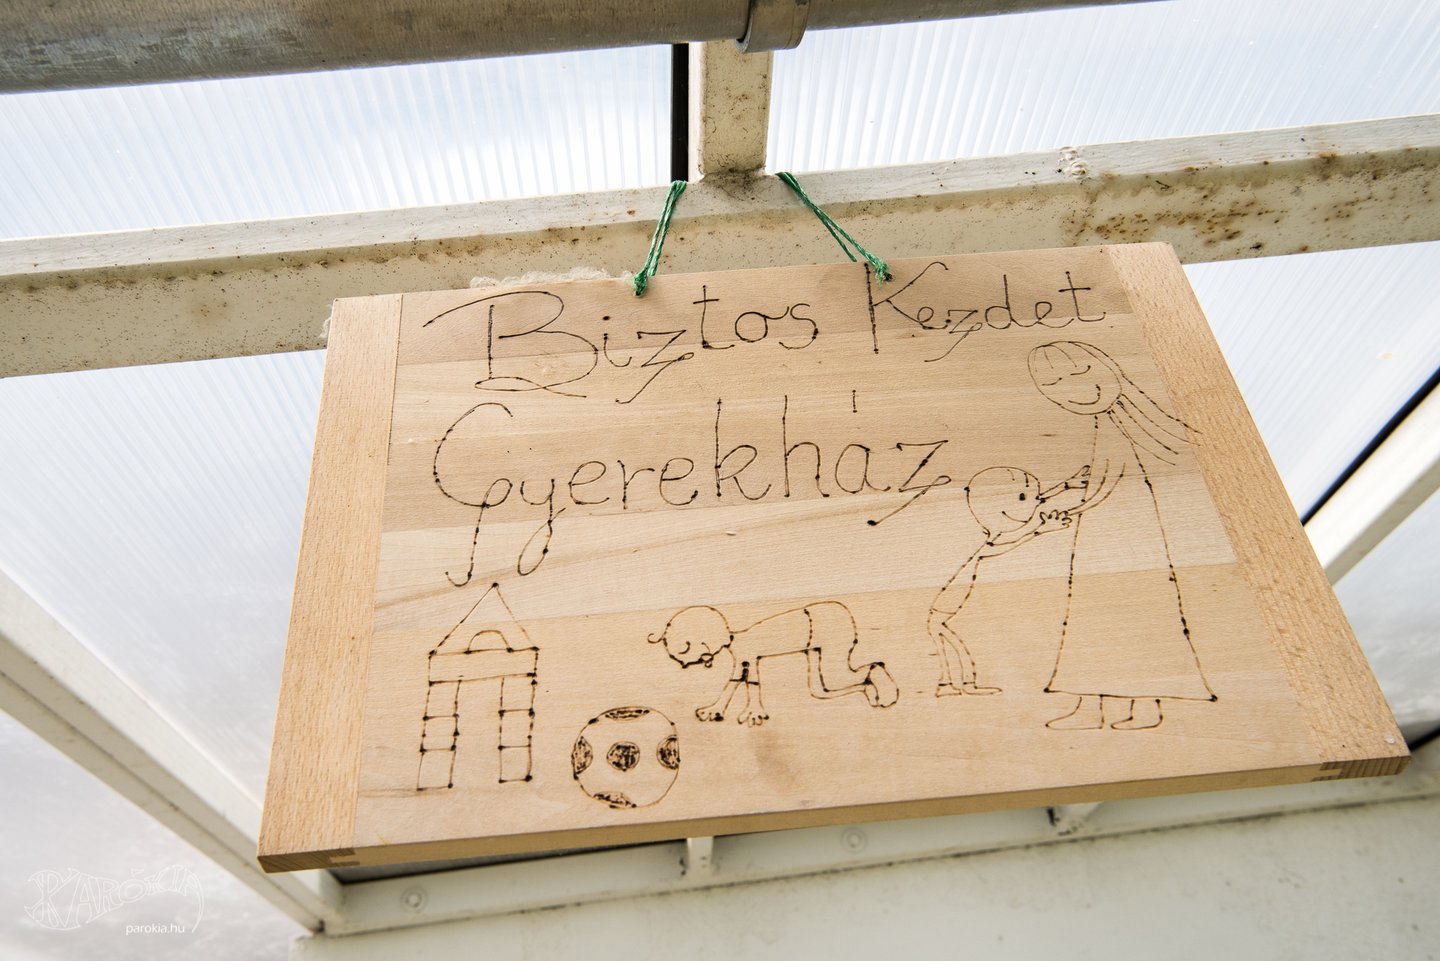 Biztos Kezdet
Gyerekház
PARÓKIA
parokia.hu